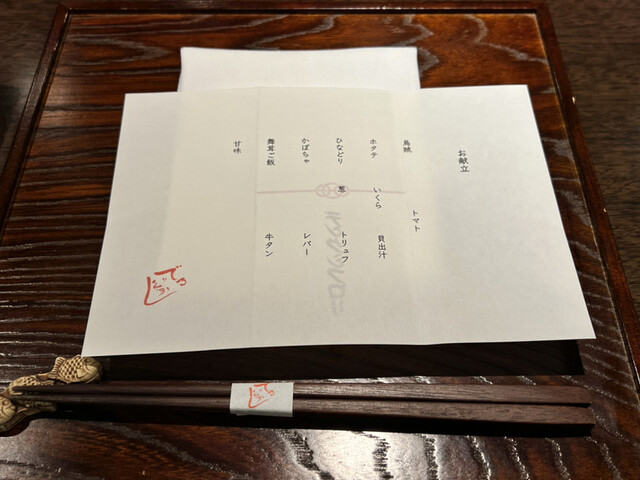 お献立
烏賊 トマト
ホタテ いくら 貝出汁
ひなどり 葱 トリュフ
かぼちゃ レバー
舞茸ご飯 牛タン
甘味